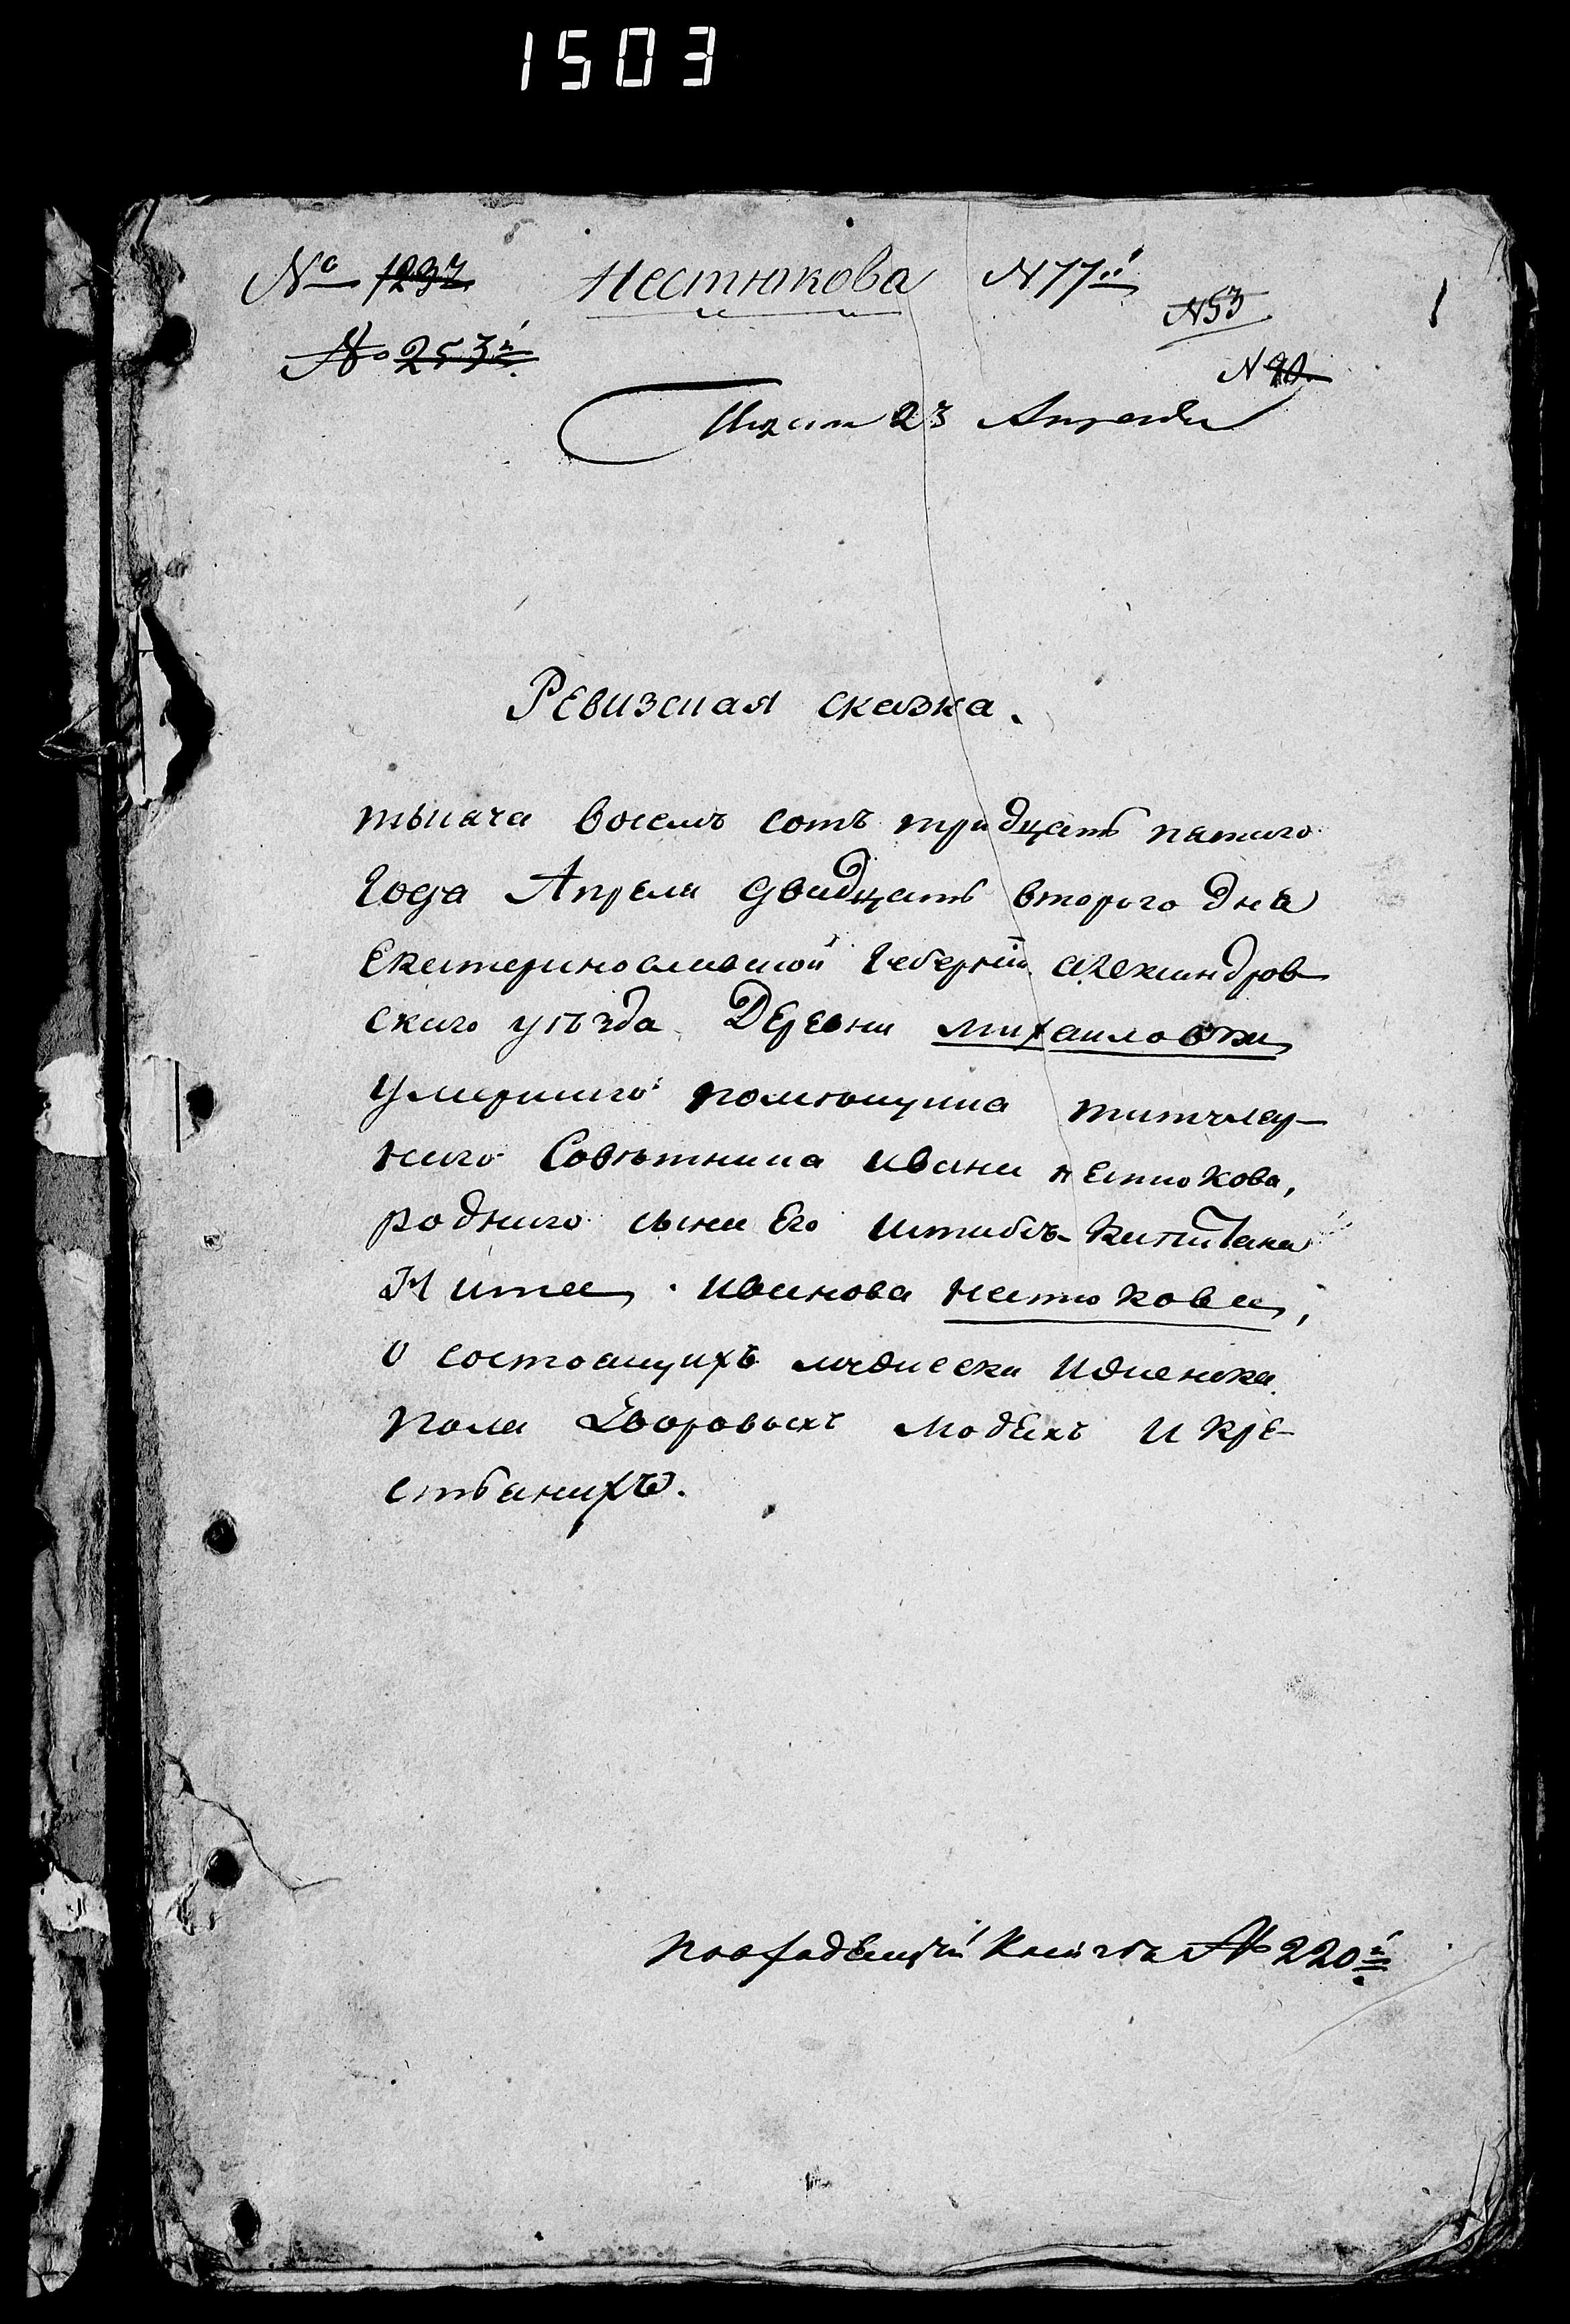 1503
№ 1237 Нестюкова N 77й
№ 253й N 53 1
N 90
23 Апреля
Ревизская сказка.
тысяча восемъ сотъ тридцать пятого
Года Апреля двадцать второго дня
Екатеринославской Губерніи александров
ского уѣзда Деревни михаиловки
умершого помѣщика титуляр-
ного Совѣтника ивана нестюкова,
родного сына Его штабсъ-Капитана
иванова нестюкова,
о состоящихъ мужеска и женска
пола Дворовыхъ людехъ и кре-
стьянихъ.
Книгѣ № 220й